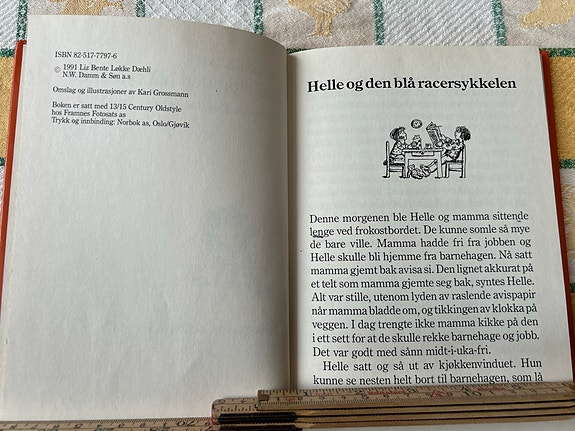 ISBN 82-517-7797-6
© 1991 Liz Bente Løkke Dæhli
N.W. Damm & Søn a.s
Omslag og illustrasjoner av Kari Grossmann
Boken er satt med 13/15 Century Oldstyle
hos Framnes Fotosats as
Trykk og innbinding: Norbok as, Oslo/Gjøvik
Helle og den blå racersykkelen
Denne morgenen ble Helle og mamma sittende
lenge ved frokostbordet. De kunne somle så mye
de bare ville. Mamma hadde fri fra jobben og
Helle skulle bli hjemme fra barnehagen. Nå satt
mamma gjemt bak avisa si. Den lignet akkurat på
et telt som mamma gjemte seg bak, syntes Helle.
Alt var stille, utenom lyden av raslende avispapir
når mamma bladde om, og tikkingen av klokka på
veggen. I dag trengte ikke mamma kikke på den
i ett sett for at de skulle rekke barnehage og jobb.
Det var godt med sånn midt-i-uka-fri.
Helle satt og så ut av kjøkkenvinduet. Hun
kunne se nesten helt bort til barnehagen, som lå